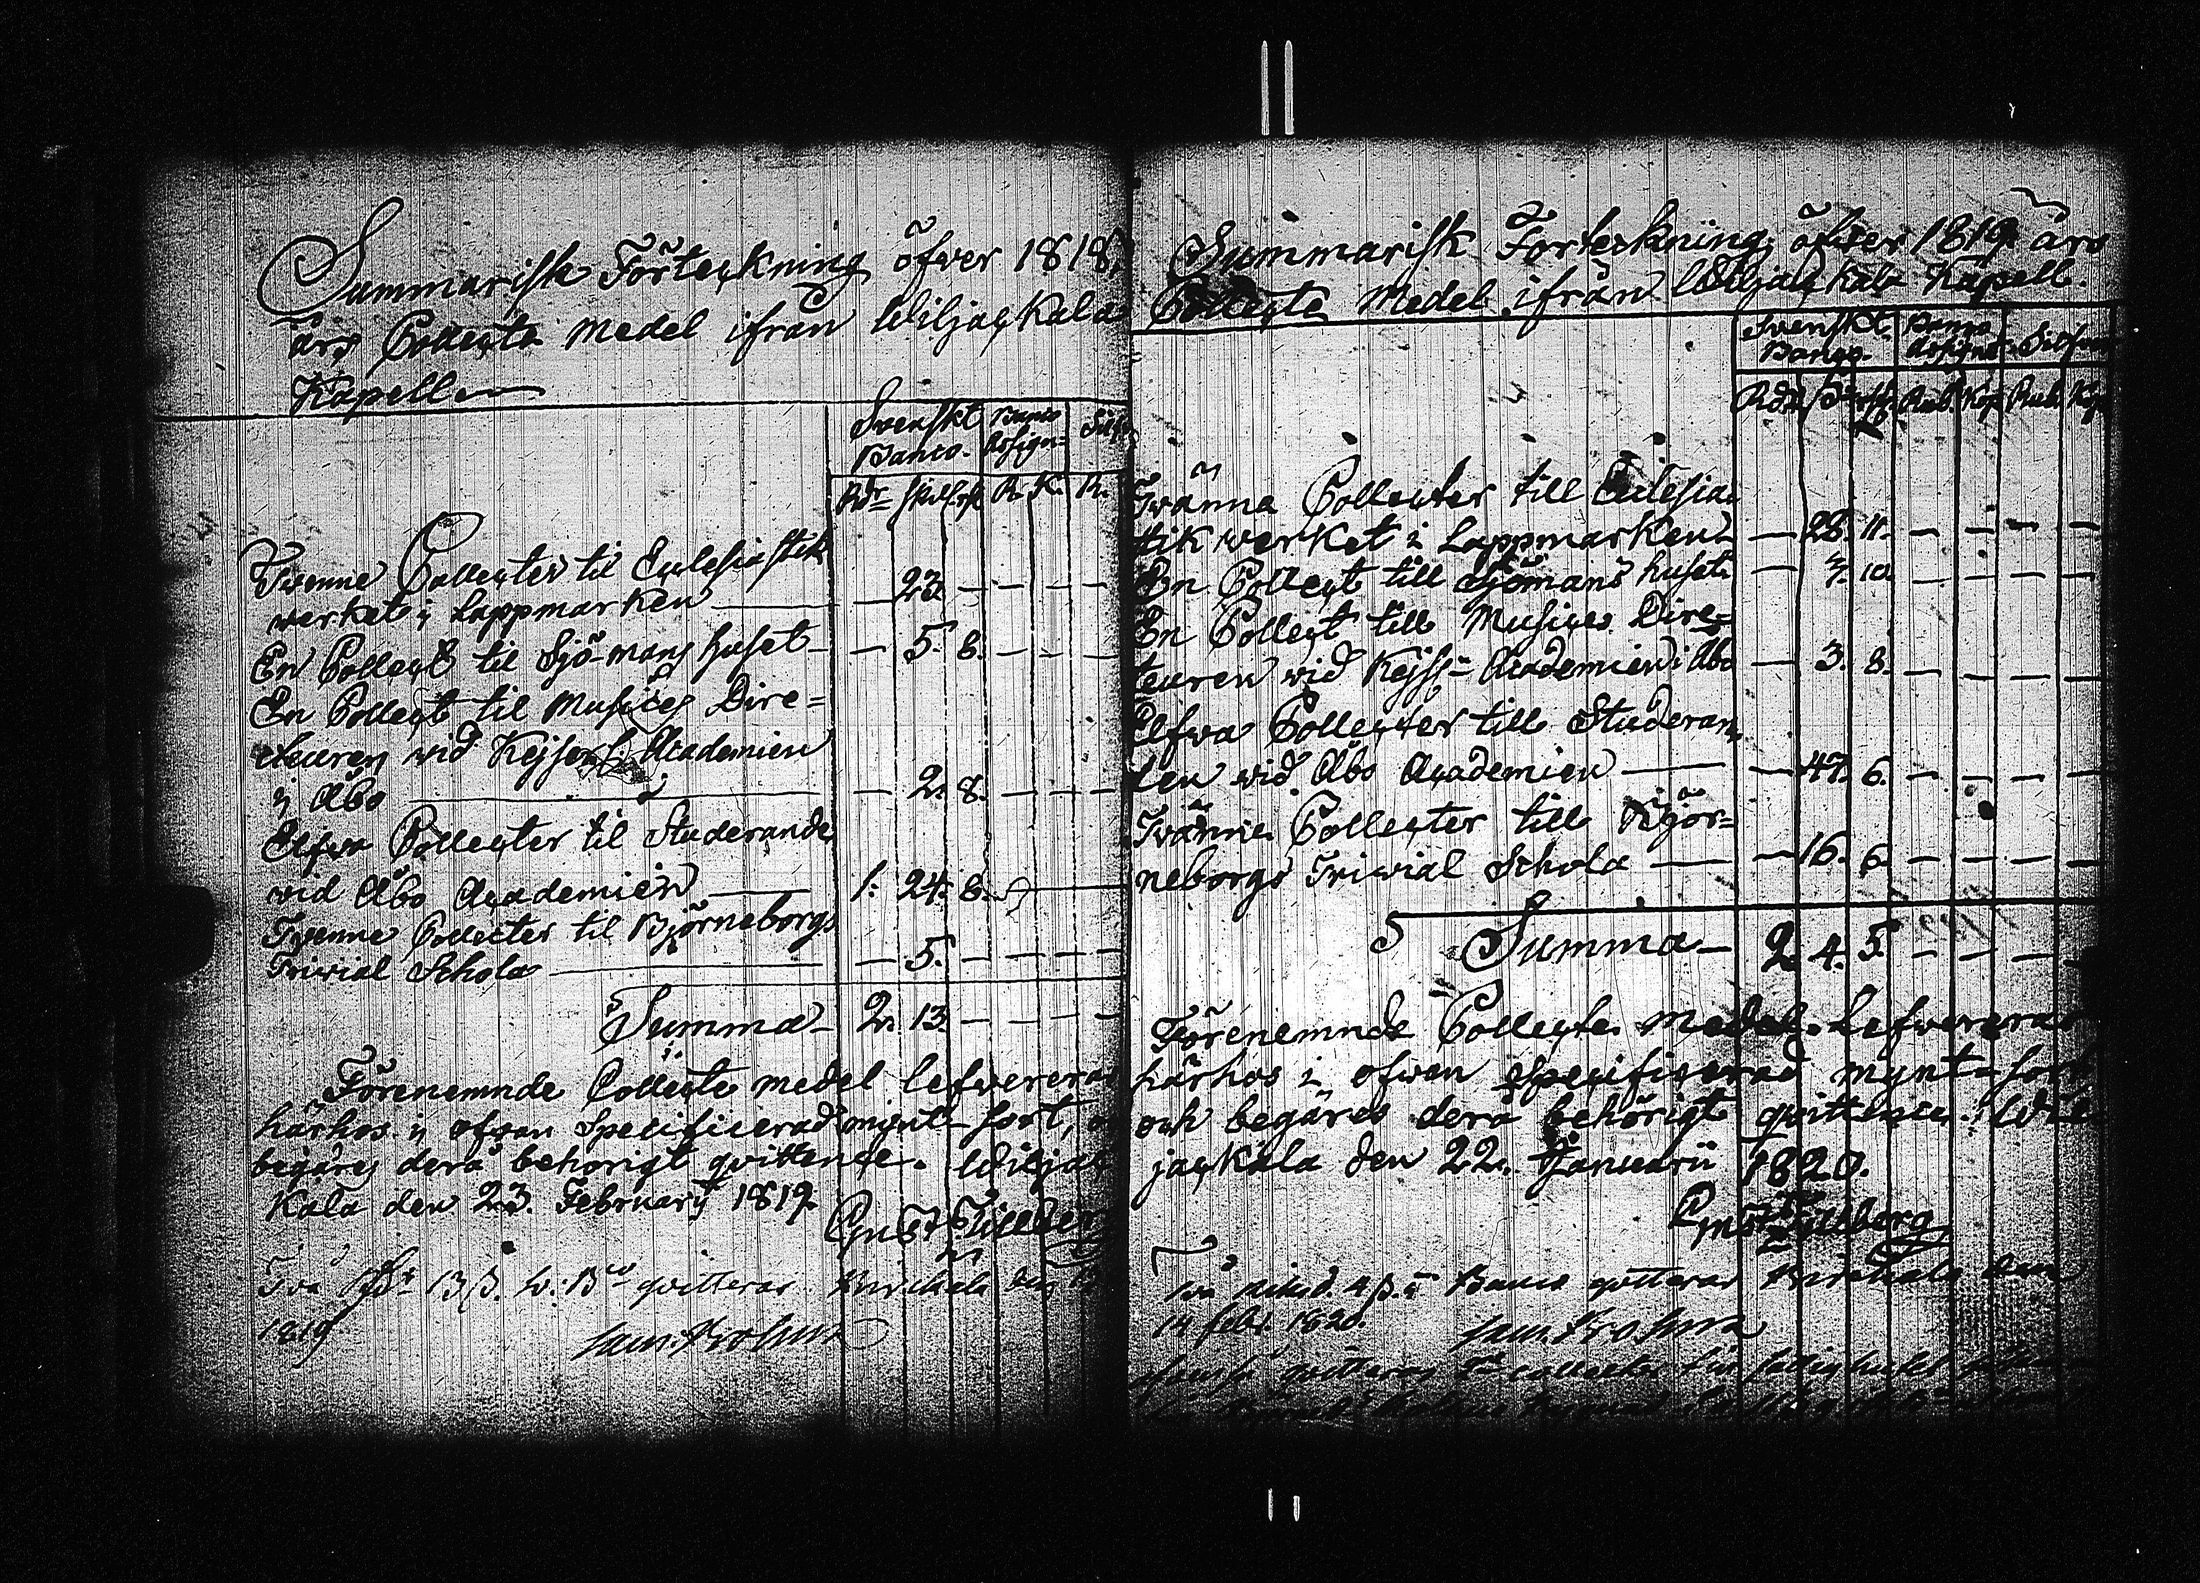 Summarisk Förteckning öfver 1818.
års Collecte Medel ifrån Wiljackala
Kapell
Svenskt Banco Silf
Banco. Assign=
Rdr skill. rst. R. K. R.
Tvenne Collecter til Ecclesiastik
werket i Lappmarken — 23. — — — —
En Collect til Sjö-mans huset — 5. 8. — — —
En Collect til Musices Dire=
cteuren wid Kejserl. Academien
i Åbo — 2. 8. — — —
Elfva Collecter til Studerande
vid Åbo Academien 1. 24. 8.
Tvenne Collecter til Björneborgs
Trivial Schola — 5. — — — —
Summa 2. 13. — — — —
Förenemnde Collecte medel lefvereras
härhos i ofvan Specificerad mynt-sort,
begäres derå behörigt qvittence. Wiljac
kala den 23. Februarii 1819.
Gust. Tillberg
Två Rdr 13 s. qvitteras
1819
Summarisk Forteckning öfver 1819 års
Collecte Medel ifrån Wiljackala Kapell.
Svenskt Banco Silfver
Banco. Assign=
Rdr s rst. Rub. Kop Rub. Kop
Tvänna Collecter till Eclesia=
stik werket i Lappmarken — 28. 11. — — — —
En Collect till Sjömans huset — 7. 10. — — — —
En Collect till Musices Dire=
teuren vid Kejss= Academien i Åbo — 3. 8. — — — —
Elfva Collecter till Studeran
den vid Åbo Academien — 47. 6. — — — —
Tvänne Collecter till Björ=
neborgs Trivial Schola — 16. 6. — — — —
Summa 2. 4. 5. — — — —
Förenemnde Collecte medel lefvereras
härhos i ofvan specificerad mynt-sort
och begäres derå behörigt qvittence. Wil
jackala den 22. Januarii 1820.
Gust Tillberg
Två 4 s. Banco qvitteras
14 febr 1820.